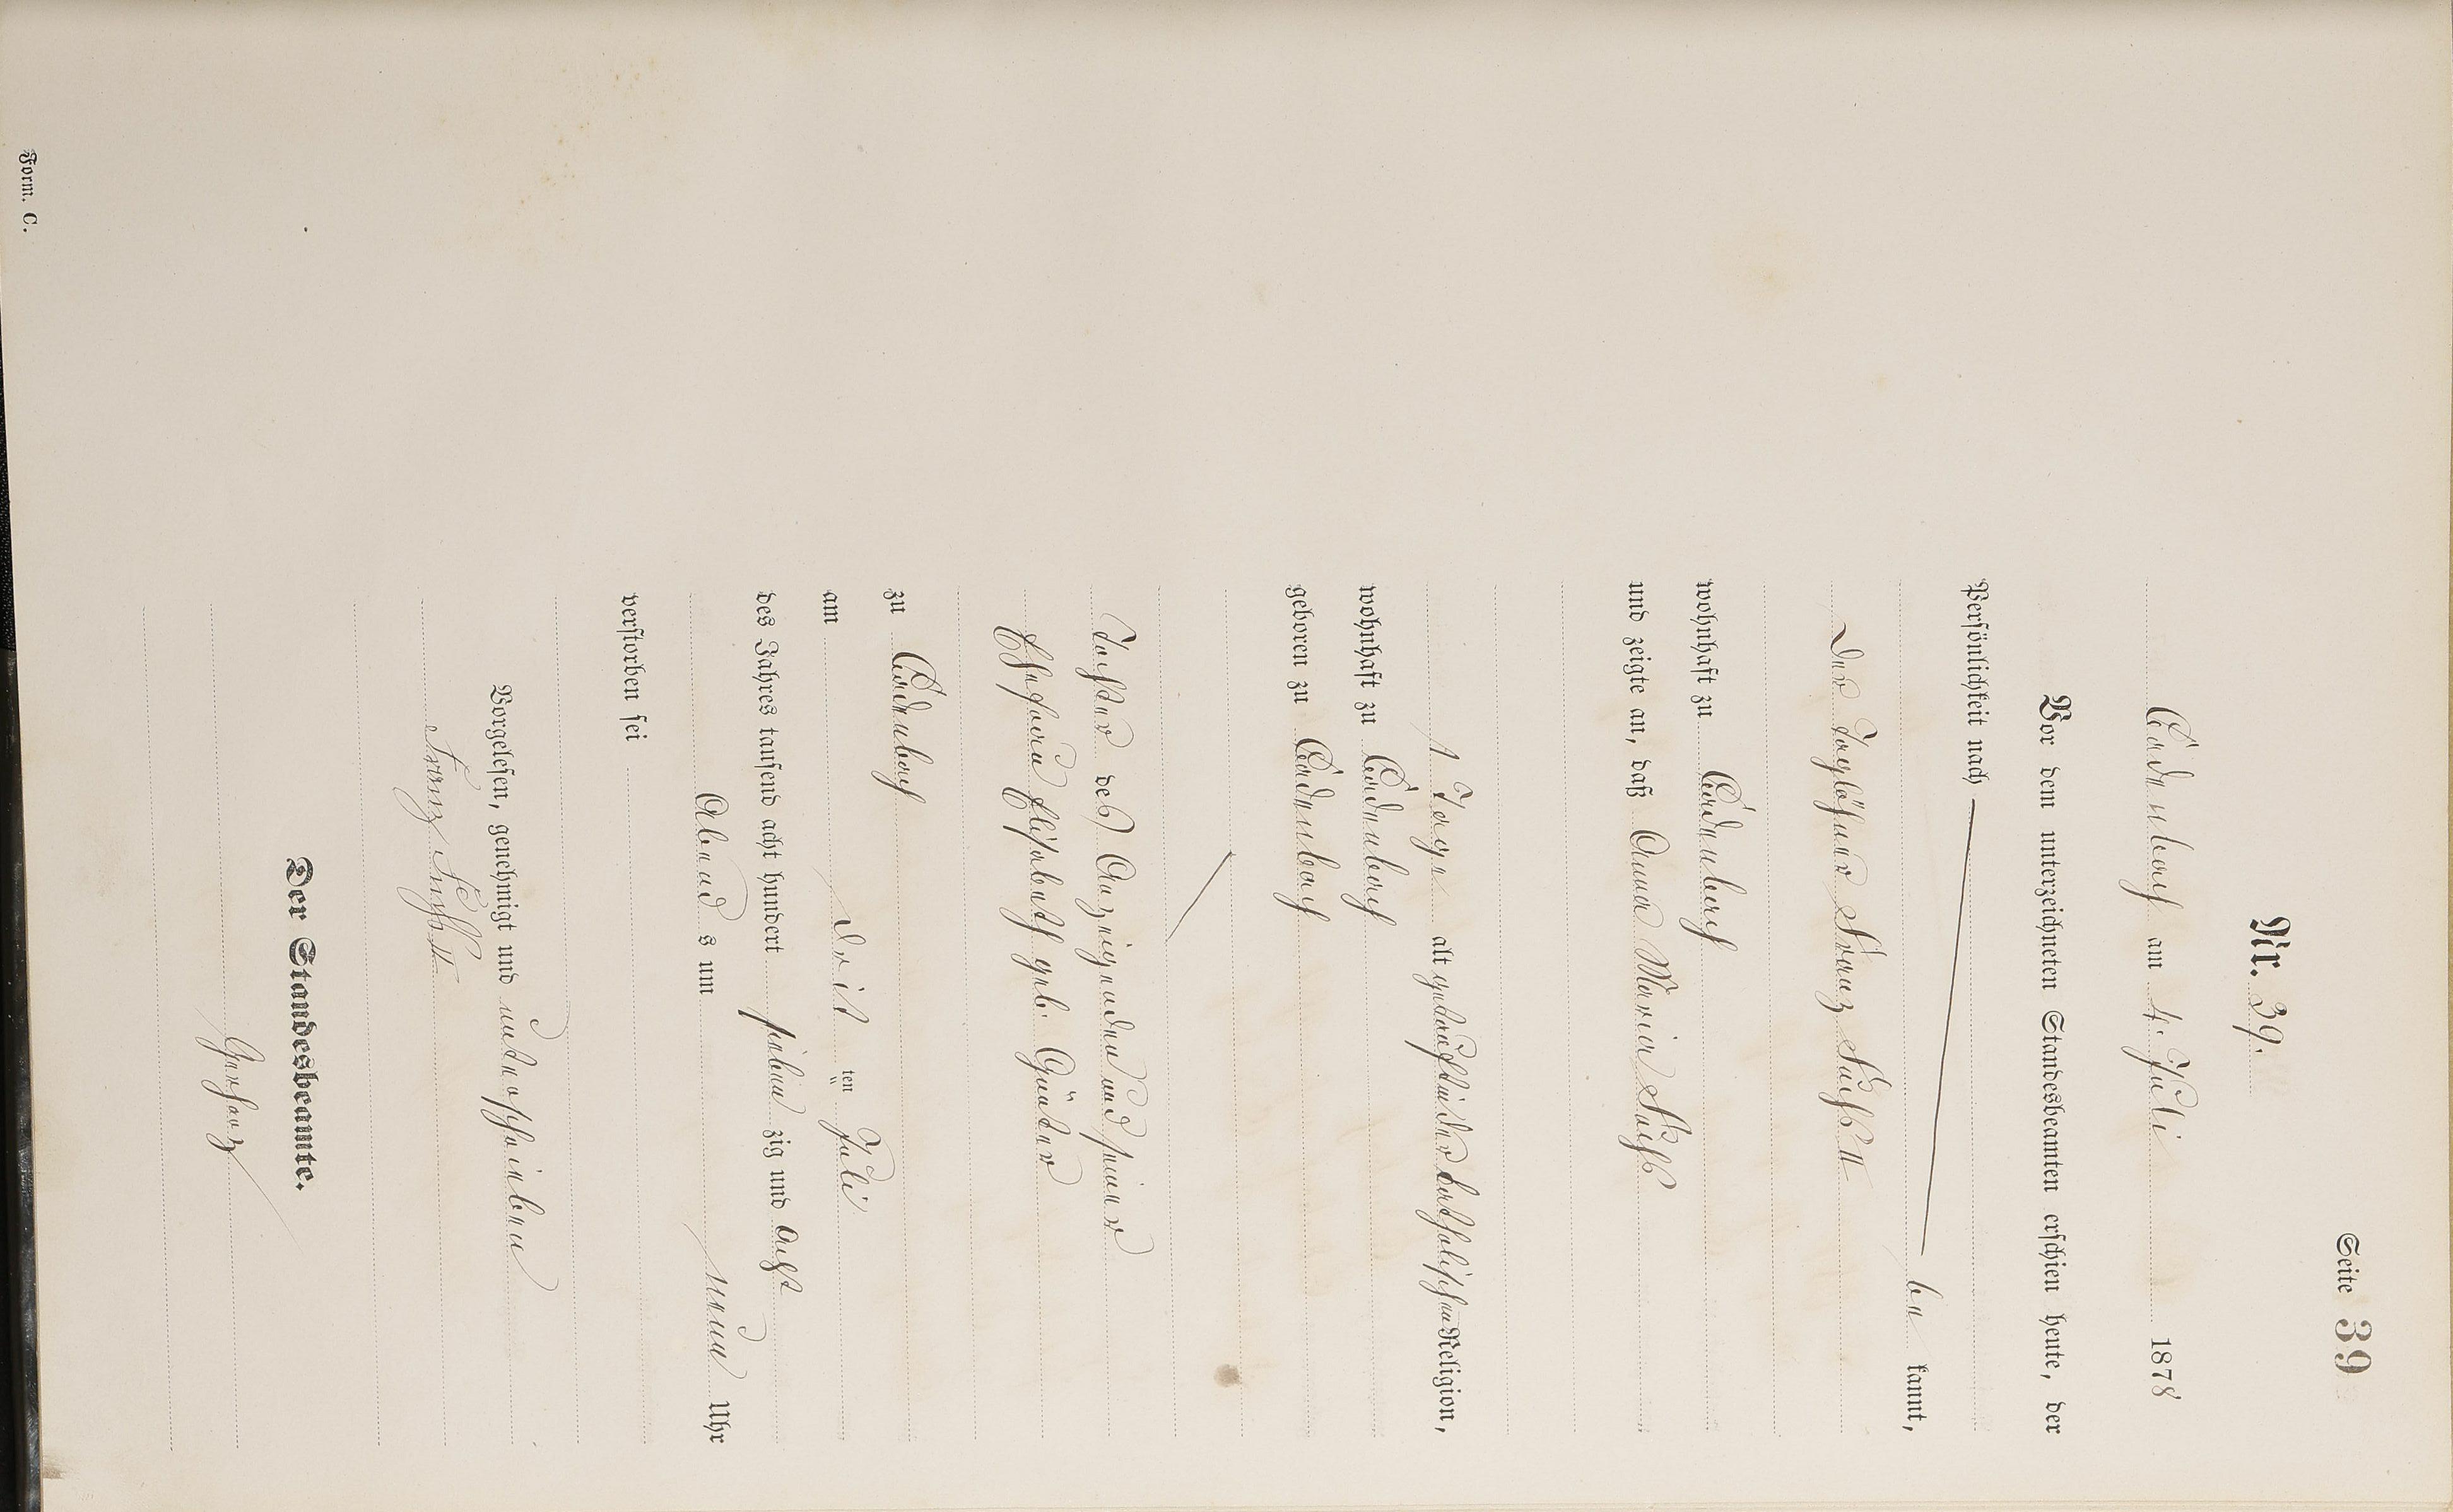 Seite 39
Nr. 39.
Cadenbach am 4. Juli 1878
Vor dem unterzeichneten Standesbeamten erschien heute, der
Persönlichkeit nach
be kannt,
der Taglöhner Franz
wohnhaft zu Cadenbach
und zeigte an, daß Anna Maria
1 Tage alt katholischen Religion,
wohnhaft zu Cadenbach
geboren zu Cadenbach
Tochter des Anzeigenden und seiner
Ehefrau Elisabeth geb.
zu Cadenbach
am drit ten Juli
des Jahres tausend acht hundert sieben zig und acht
Abend s um neun Uhr
verstorben sei
Vorgelesen, genehmigt und unterschrieben
Franz
Der Standesbeamte.
Form. C.